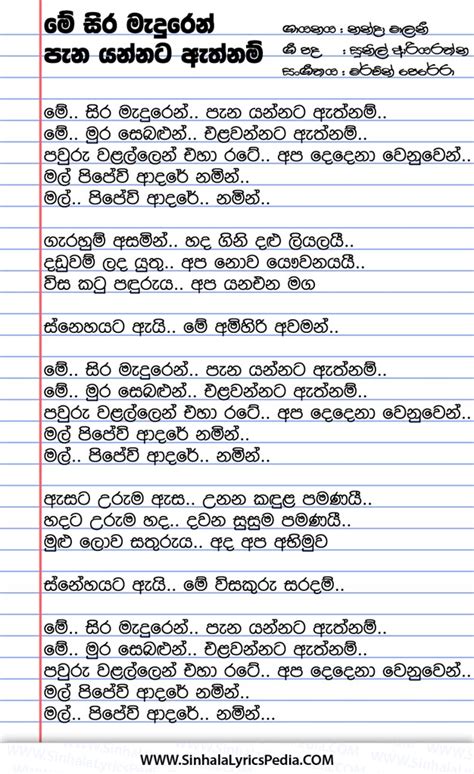 මේ සිර මැදුරෙන්
පැන යන්නට ඇත්නම්
ගායනය : නන්දා මාලනී
ගී පද : සුනිල් ආරියරත්න
සංගීතය : මර්වින් පෙරේරා
මේ.. සිර මැදුරෙන්.. පැන යන්නට ඇත්නම්..
මේ.. මුර සෙබළුන්.. එළවන්නට ඇත්නම්..
පවුරු වළල්ලෙන් එහා රටේ.. අප දෙදෙනා වෙනුවෙන්..
මල් පිපේවි ආදරේ නමින්..
මල්.. පිපේවි ආදරේ.. නමින්..
ගැරහුම් අසමින්.. හද ගිනි දළු ලියලයී..
දඬුවම් ලද යුතු.. අප නොව යෞවනයයී..
විස කටු පඳුරුය.. අප යනඑන මග
ස්නෙහයට ඇයි.. මේ අමිහිරි අවමන්..
මේ.. සිර මැදුරෙන්.. පැන යන්නට ඇත්නම්..
මේ.. මුර සෙබළුන්.. එළවන්නට ඇත්නම්..
පවුරු වළල්ලෙන් එහා රටේ.. අප දෙදෙනා වෙනුවෙන්..
මල් පිපේවි ආදරේ නමින්..
මල්.. පිපේවි ආදරේ.. නමින්..
ඇසට උරුම ඇස.. උනන කඳුළ පමණයී..
හදට උරුම හද.. දවන සුසුම පමණයී..
මුළු ලොව සතුරුය.. අද අප අභිමුව
ස්නේහයට ඇයි.. මේ විසකුරු සරදම්..
මේ.. සිර මැදුරෙන්.. පැන යන්නට ඇත්නම්..
මේ.. මුර සෙබළුන්.. එළවන්නට ඇත්නම්..
පවුරු වළල්ලෙන් එහා රටේ.. අප දෙදෙනා වෙනුවෙන්..
මල් පිපේවි ආදරේ නමින්..
මල්.. පිපේවි ආදරේ.. නමින්...
www.SinhalaLyricsPedia.COM